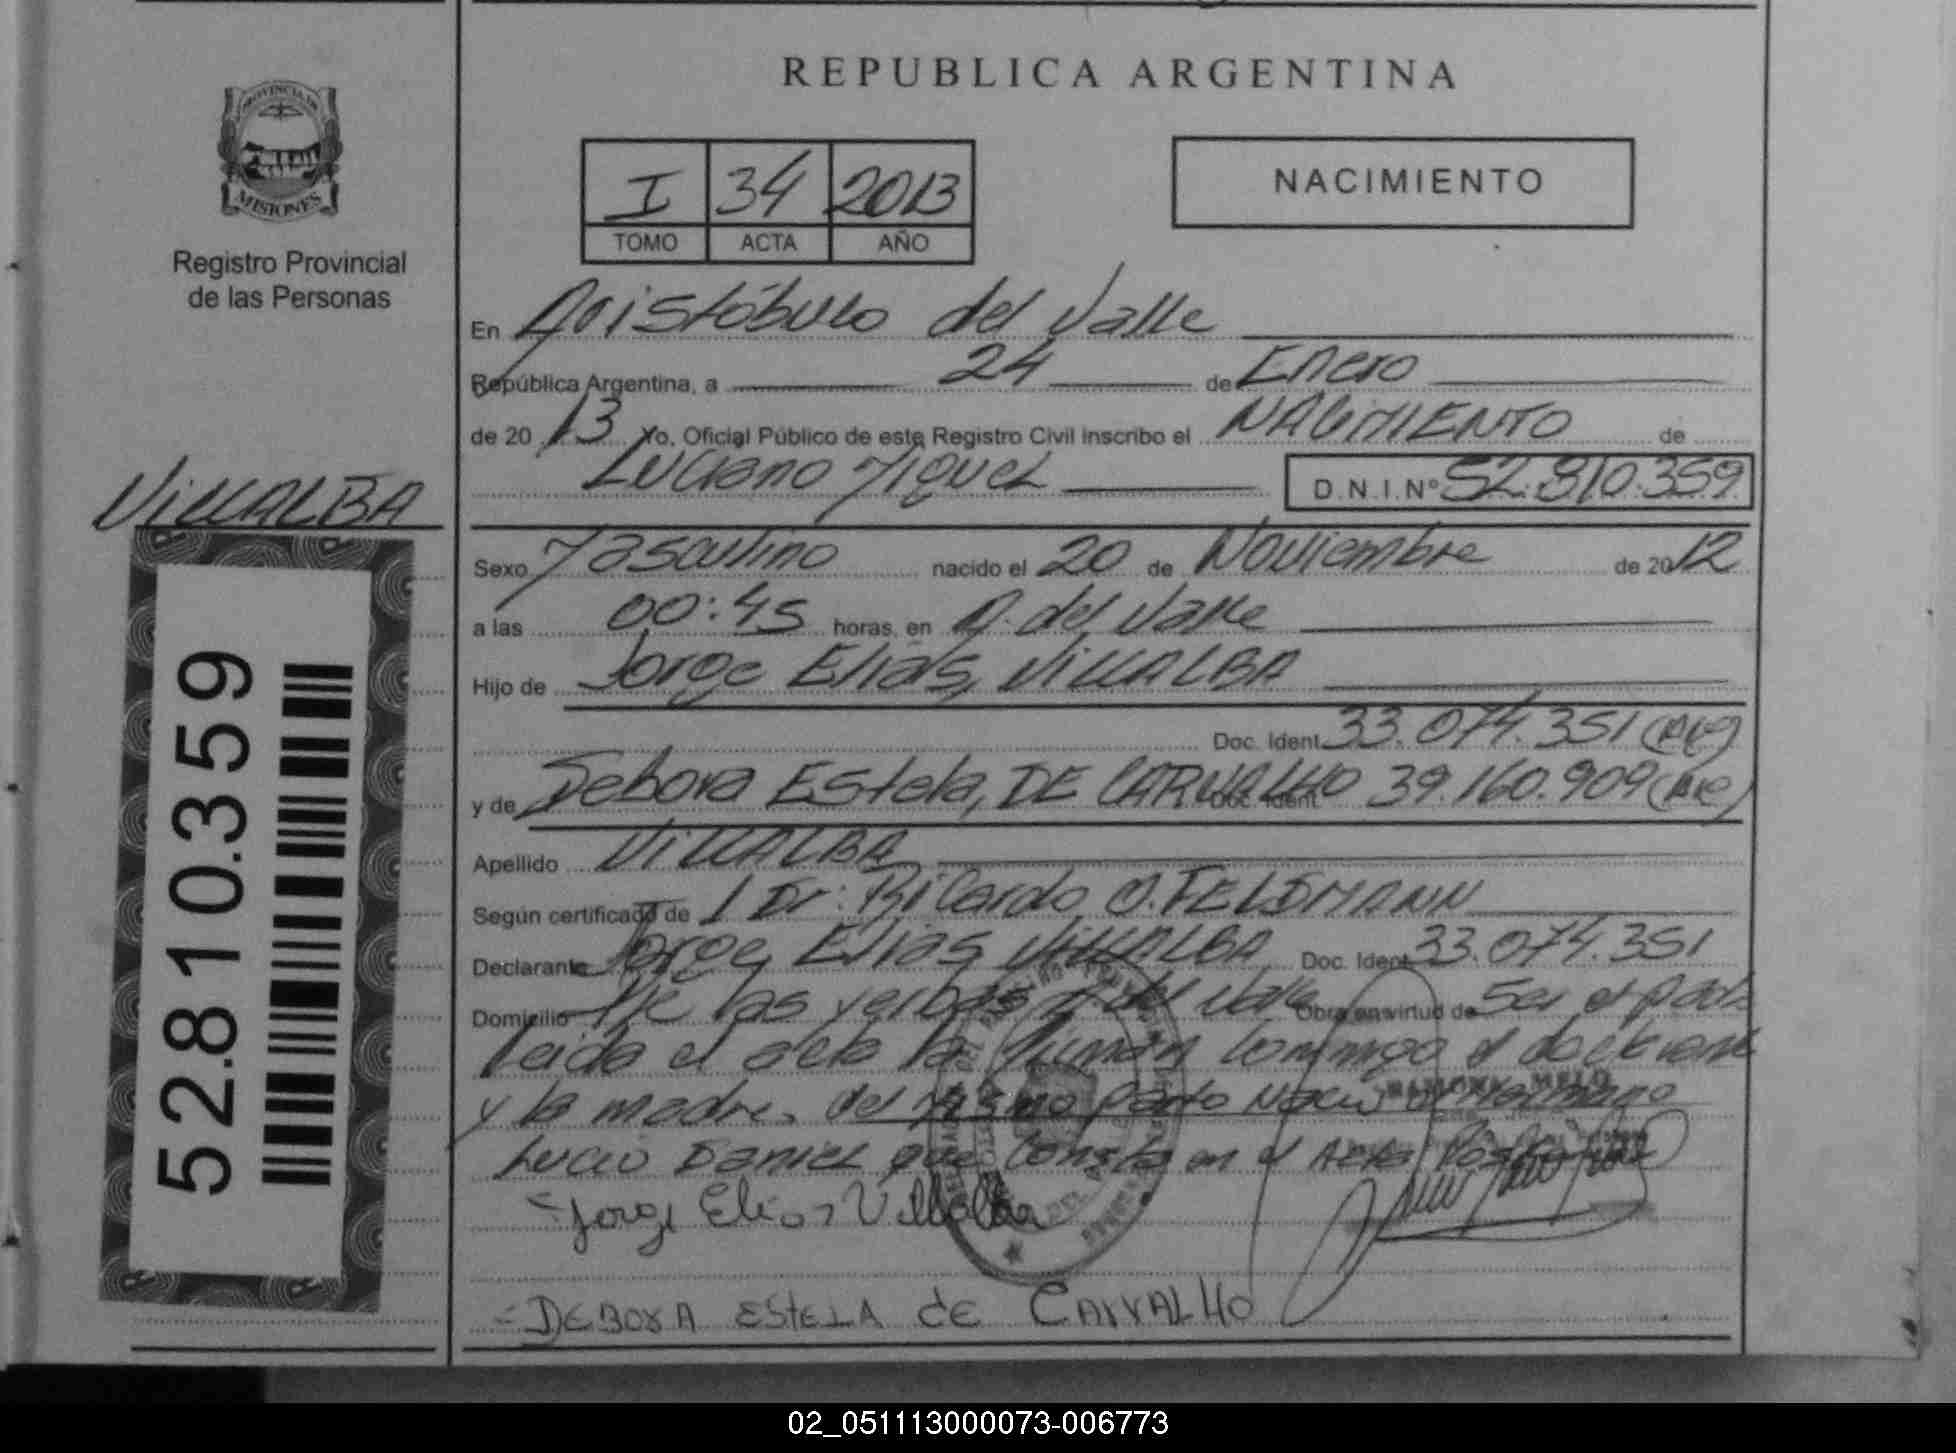 REPUBLICA ARGENTINA
PROVINCIA DE
MISIONES
Registro Provincial
de las Personas
I 34 2013
TOMO ACTA AÑO
NACIMIENTO
En Aristóbulo del Valle
República Argentina, a 24 de Enero
de 2013 Yo, Oficial Público de este Registro Civil inscribo el NACIMIENTO de
Luciano Miguel D.N.I.Nº 52.810.359
VILLALBA
52.810.359
Sexo Masculino nacido el 20 de Noviembre de 2012
a las 00:45 horas, en A. del Valle
Hijo de Jorge Elias, VILLALBA
Doc. Ident. 33.074.351 (Arg)
y de Debora Estela, DE CARVALHO Doc. Ident. 39.160.909 (Arg)
Apellido VILLALBA
Según certificado de / Dr: Ricardo O. FELDMANN
Declarante Jorge Elias VILLALBA Doc. Ident. 33.074.351
Domicilio las yerbas A del Valle Obra en virtud de Ser el padre
Leida el acta la firman conmigo el declarante
y la madre, del mismo parto Nacio un hermano
Lucio Daniel que consta en el Acta
Jorge Elias Villalba
DEBORA ESTELA de CARVALHO
02_051113000073-006773